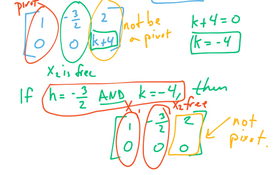 pivot
1 -3/2 2
0 0 k+4
not be a pivot
k+4=0
k=-4
x₂ is free
If h=-3/2 AND k=-4, then
x₂ free
1 -3/2 2
0 0 0
not pivot.